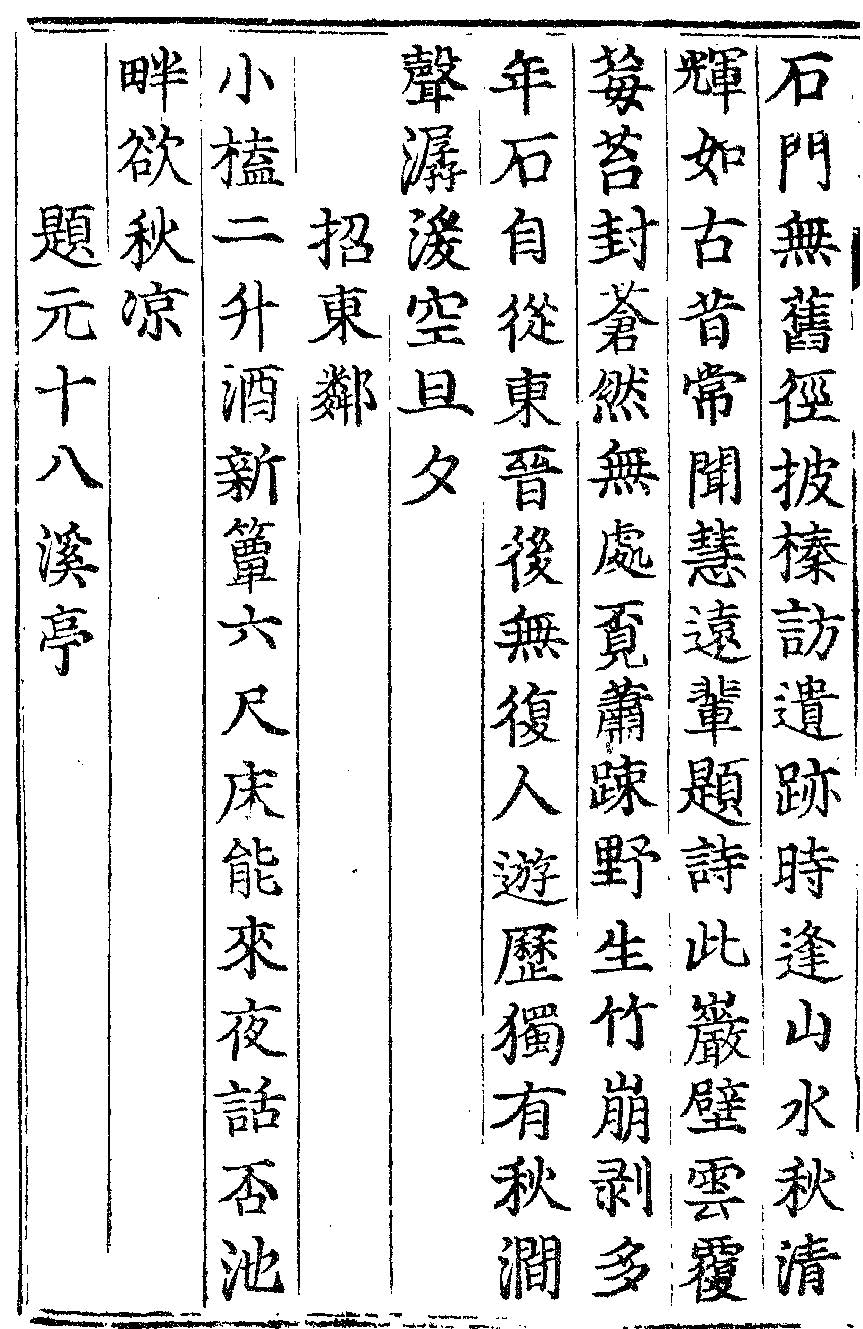 石門無舊徑披榛訪遺跡時逢山水秋清
輝如古昔常聞慧遠輩題詩此巖壁雲覆
莓苔封蒼然無處覓蕭踈野生竹崩剥多
年石自從東晉後無復人遊歷獨有秋澗
聲潺湲空旦夕
招東鄰
小榼二升酒新簟六尺床能來夜話否池
畔欲秋凉
題元十八溪亭